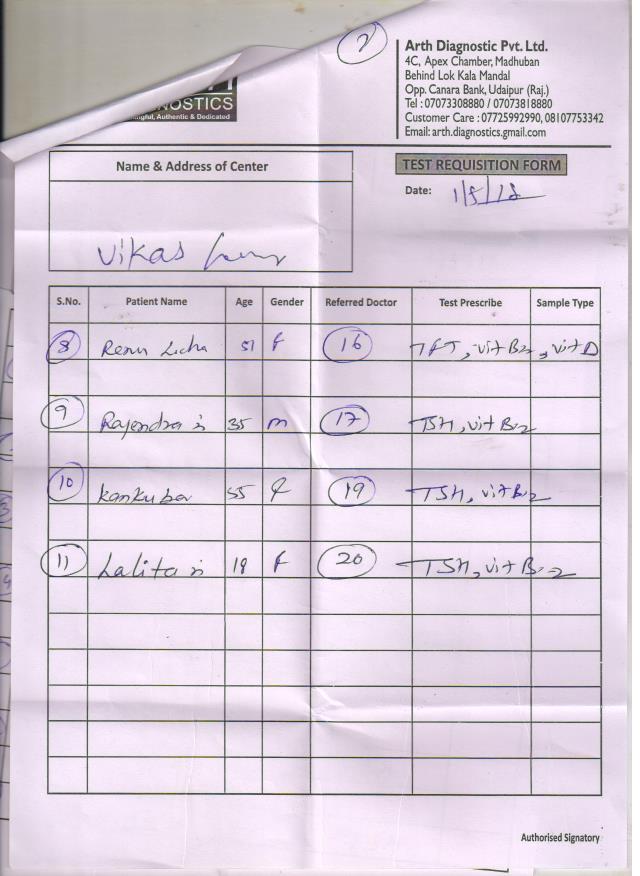 2
Arth Diagnostic Pvt. Ltd.
4C, Apex Chamber, Madhuban
Behind Lok Kala Mandal
Opp. Canara Bank, Udaipur (Raj.)
Tel : 07073308880 / 07073818880
Customer Care : 07725992990, 08107753342
Email: arth.diagnostics.gmail.com
NOSTICS
ngful, Authentic & Dedicated
Name & Address of Center
TEST REQUISITION FORM
Date:
Vikas
S.No. Patient Name Age Gender Referred Doctor Test Prescribe Sample Type
8 Renu 51 F 16 TFT, vit B12, vit D
9 Rajendra 35 m 17 TSH, vit B12
10 Kanku 55 F 19 TSH, vit B12
11 Lalita 18 F 20 TSH, vit B12
Authorised Signatory